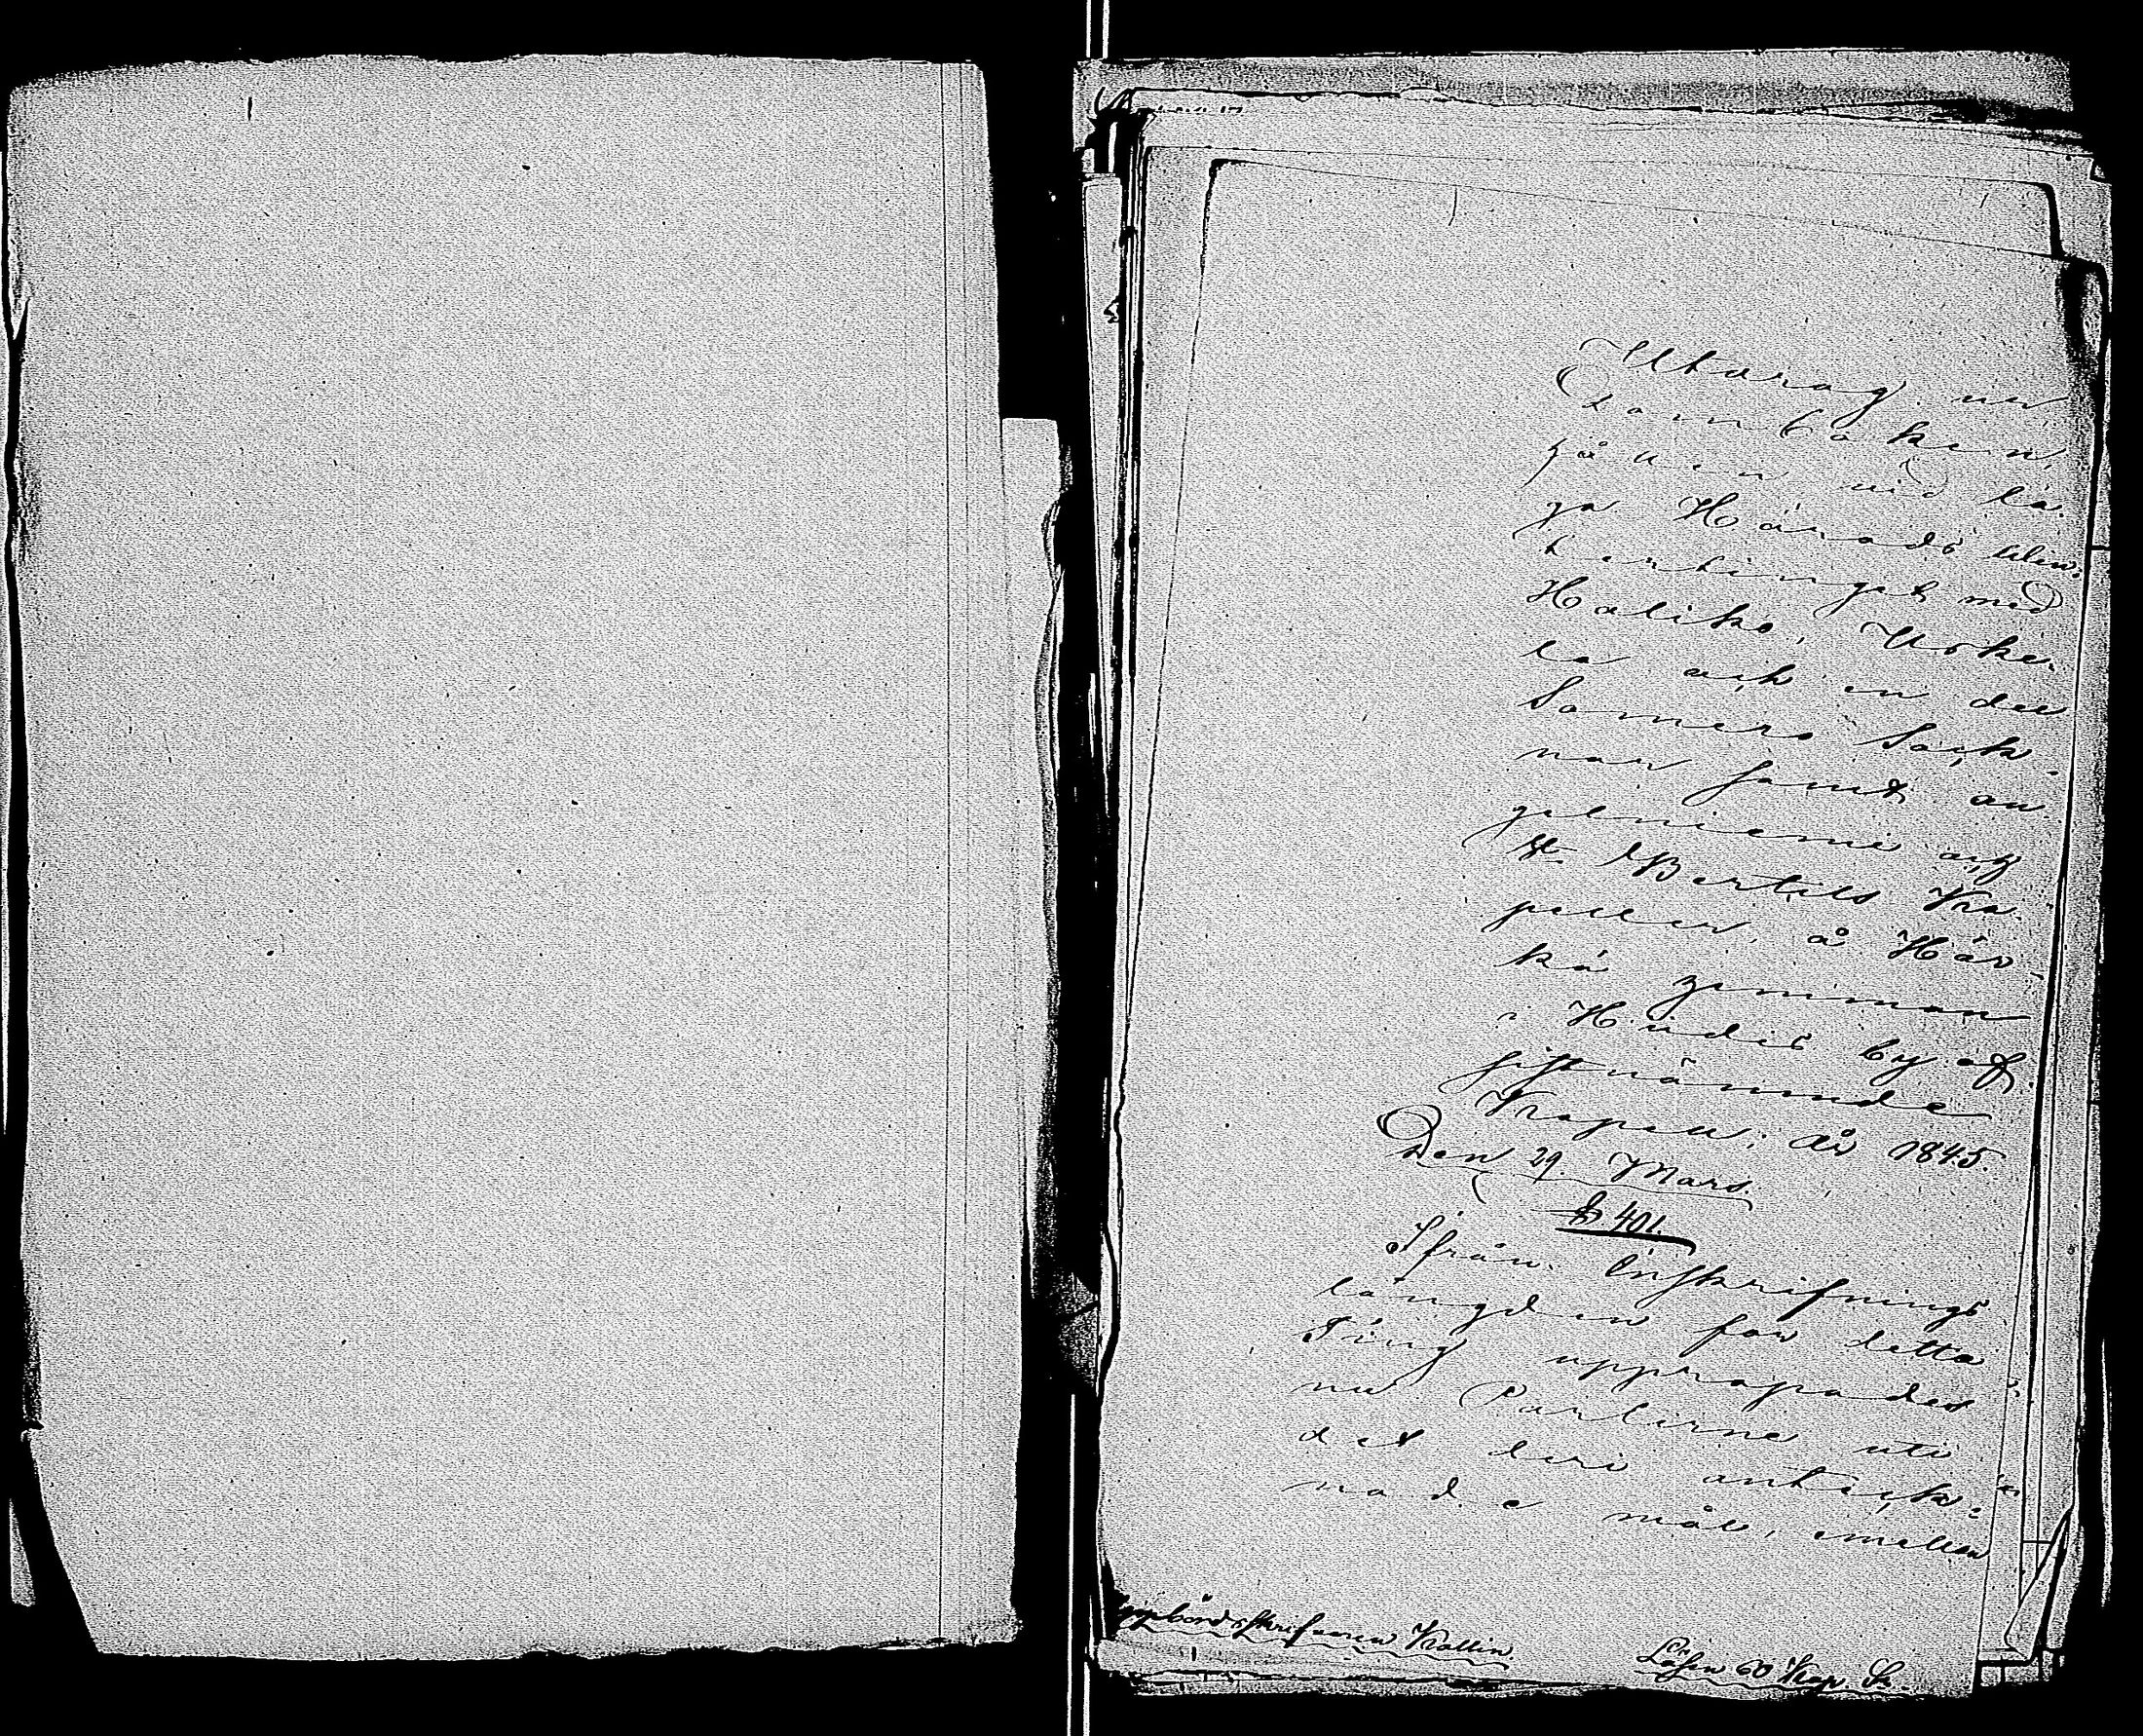 Utdrag ur
Domboken,
på den vid la-
ga Härads Vin-
tertinget med
Haliko, Uske-
la och en del
Somero Sock-
nar samt an-
gelniemi och
St. Bertils Ka-
peller, å Här-
kä hemman
i Hudis by af
sistnämnde
Kapell; år 1845.
Den 29. Mars.
§ 401.
Ifrån Inskrifnings
längden för detta
Ting uppropades
nu Parterne uti
det deri anteck-
nade mål, emellan
Uppbördsskrifvaren Kallin.
Lösen 60 Kop. S.